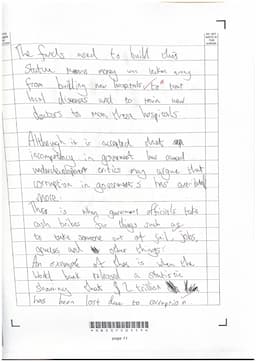 The funds used to build this
statue means money was taken away
from building new hospitals, to treat
local diseases and to train new
doctors to man these hospitals.
Although it is accepted that
incompetency in government has caused
underdevelopment critics may argue that
corruption in governments has contributed
more.
There is when government officials take
cash bribes for things such as
to take someone out of jail, jobs,
and other things.
An example of this is when the
World bank released a statistic
showing that $1 trillion
has been lost due to corruption
page 11